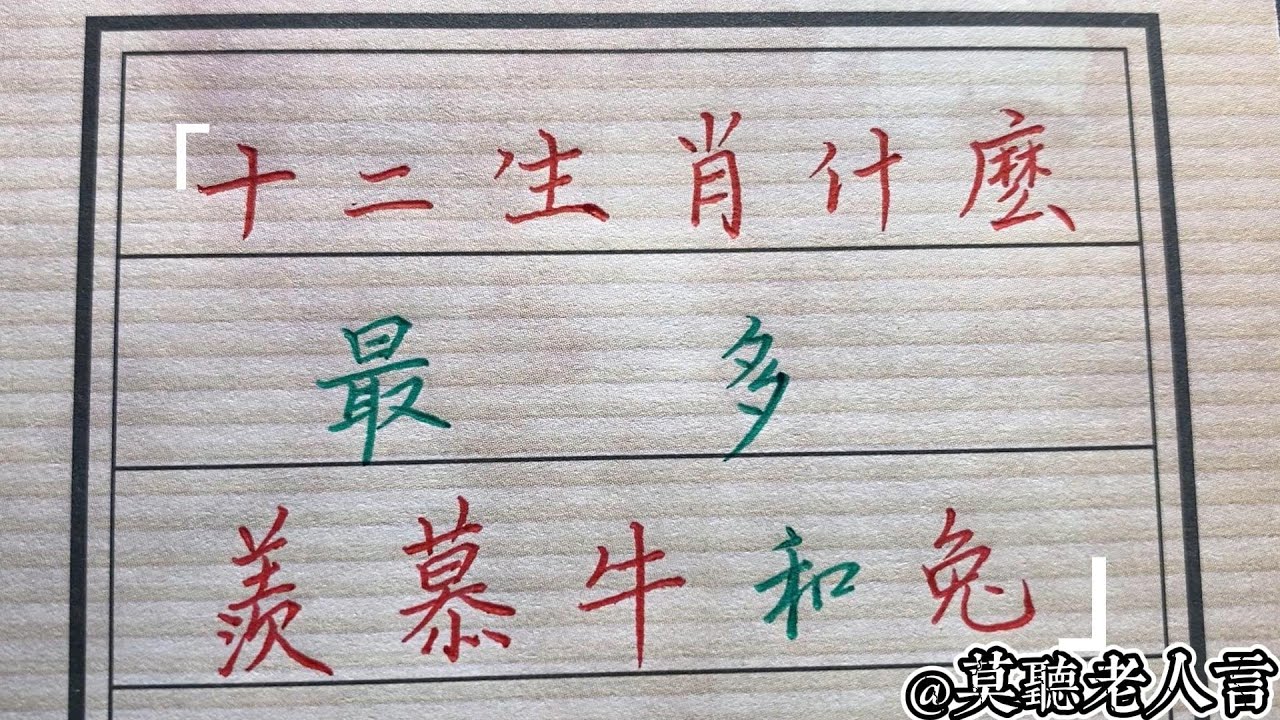 「十二生肖什麽
最多
羨慕牛和兔」
@莫聽老人言